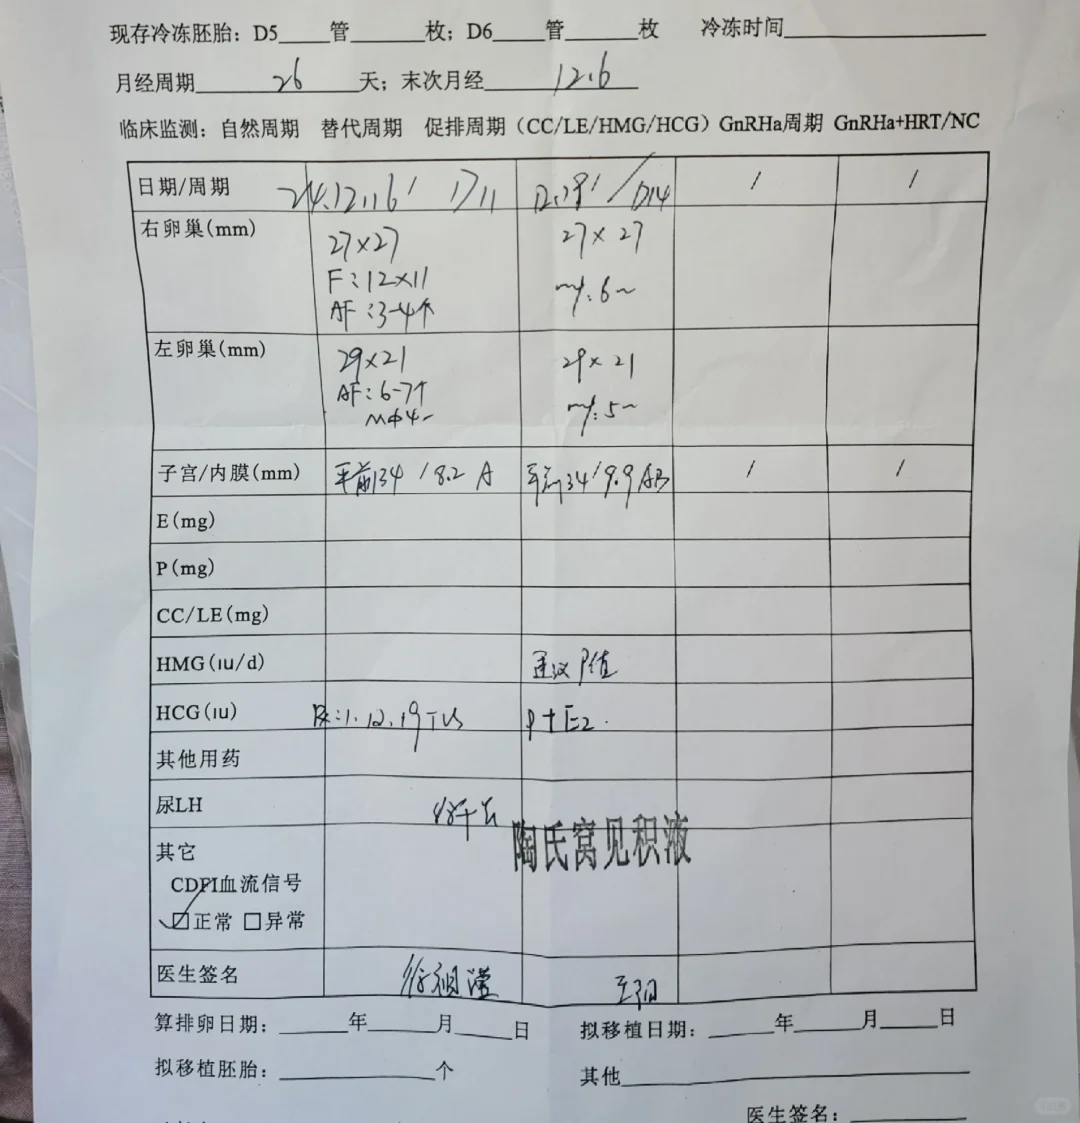 现存冷冻胚胎：D5____管______枚；D6____管______枚 冷冻时间__________
月经周期 26 天；末次月经 12.6
临床监测：自然周期 替代周期 促排周期（CC/LE/HMG/HCG）GnRHa周期 GnRHa+HRT/NC
日期/周期 24.12.16/ D11 12.19/ D14 / /
右卵巢(mm) 27×27 27×27
F：12×11
AF：3-4个 6~
左卵巢(mm) 29×21 29×21
AF：6-7个
MΦ4~ 5~
子宫/内膜(mm) 平前134/8.2 A 34/9.9 AB / /
E(mg)
P(mg)
CC/LE(mg)
HMG(iu/d) 建议P值
HCG(iu) 1.12.19 TVS P+E2.
其他用药
尿LH
其它
陶氏窝见积液
CDFI血流信号
正常 □异常
医生签名
算排卵日期：______年______月_____日 拟移植日期：______年______月_____日
拟移植胚胎：______________个 其他______________
医生签名：__________